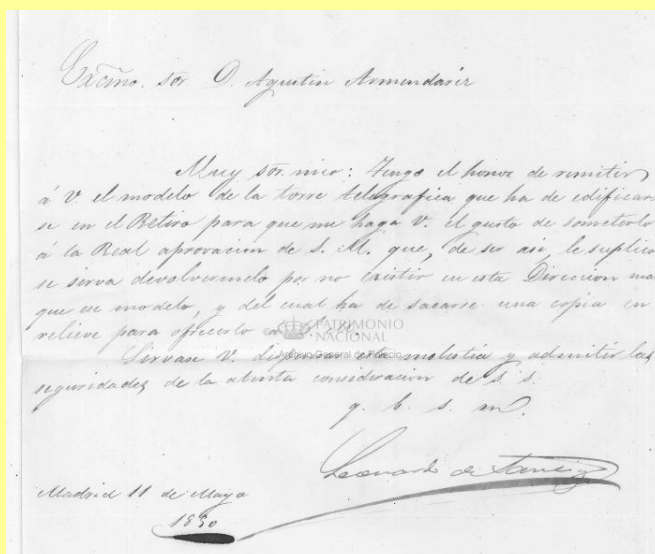 Excmo. Sor. D. Agustin Armendariz
Muy sor. mio: Tengo el honor de remitir
á V. el modelo de la torre telegrafica que ha de edificar
se en el Retiro para que me haga V. el gusto de someterlo
á la Real aprovacion de S. M. que, de ser asi, le suplico
se sirva devolvermelo por no existir en esta Direcion mas
que ese modelo, y del cual ha de sacarse una copia en
relieve para ofrecerlo
PATRIMONIO
NACIONAL
Sirvase V. molestia y admitir las
Archivo General de Palacio
seguridades de la atenta consideracion de S. S.
q. b. s. m.
Madrid 11 de Mayo
1850